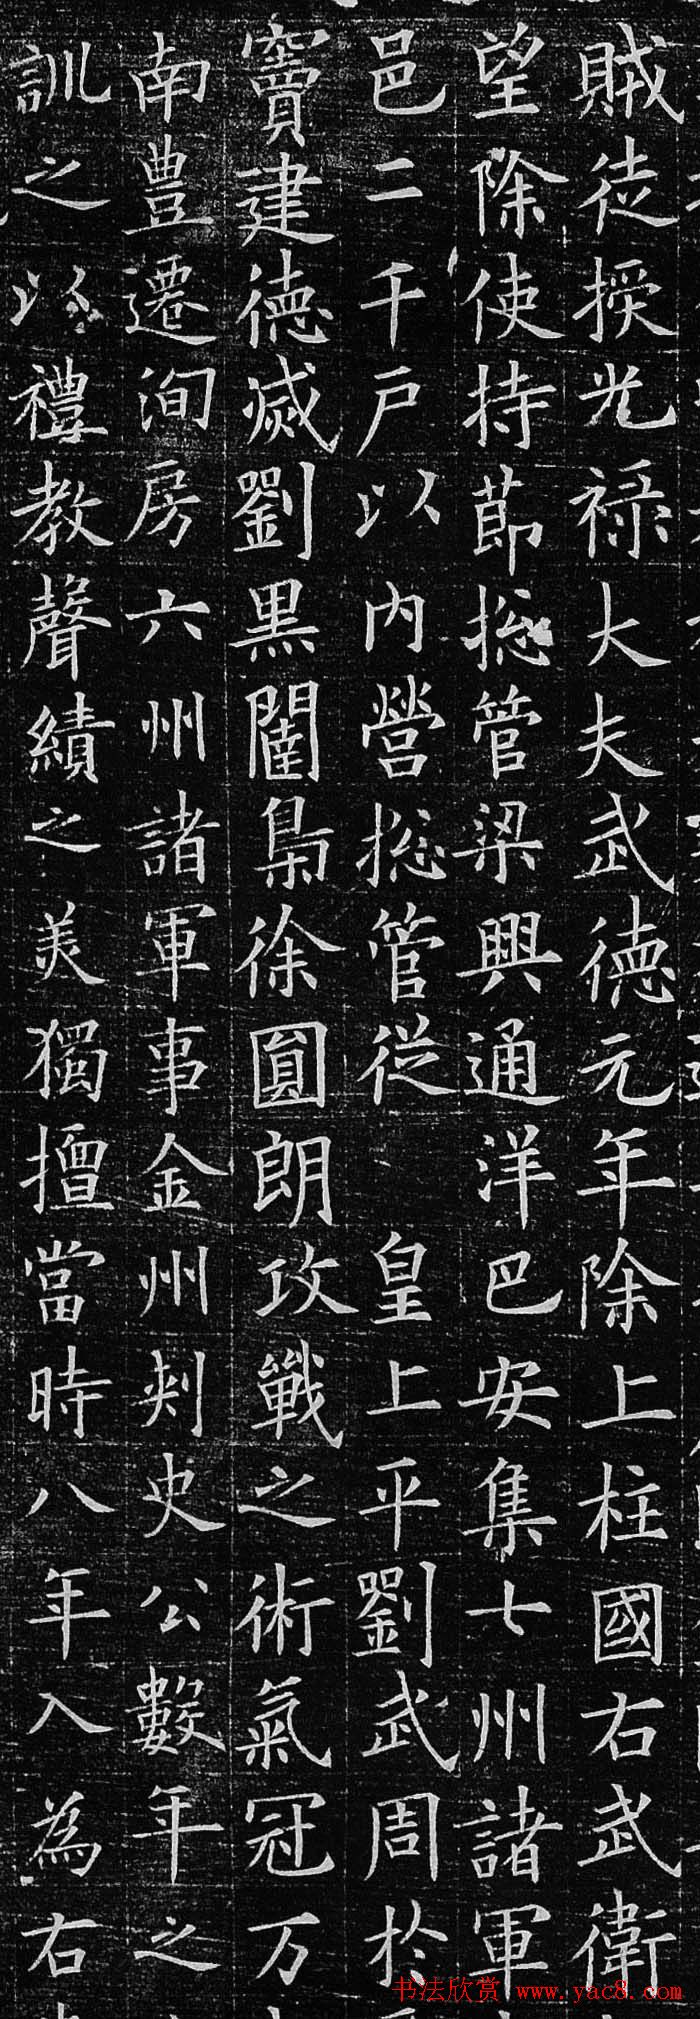 賊徒授光祿大夫武德元年除上柱國右武衛
望除使持莭揔管梁興通洋巴安集七州諸軍
邑二千戶以內營揔管從 皇上平劉武周於
竇建德滅劉黑闥梟徐圓朗攻戰之術氣冠万
南豊遷洵房六州諸軍事金州刾史公數年之
訓之以禮教聲績之美獨擅當時八年入為右
书法欣赏 www.yac8.com